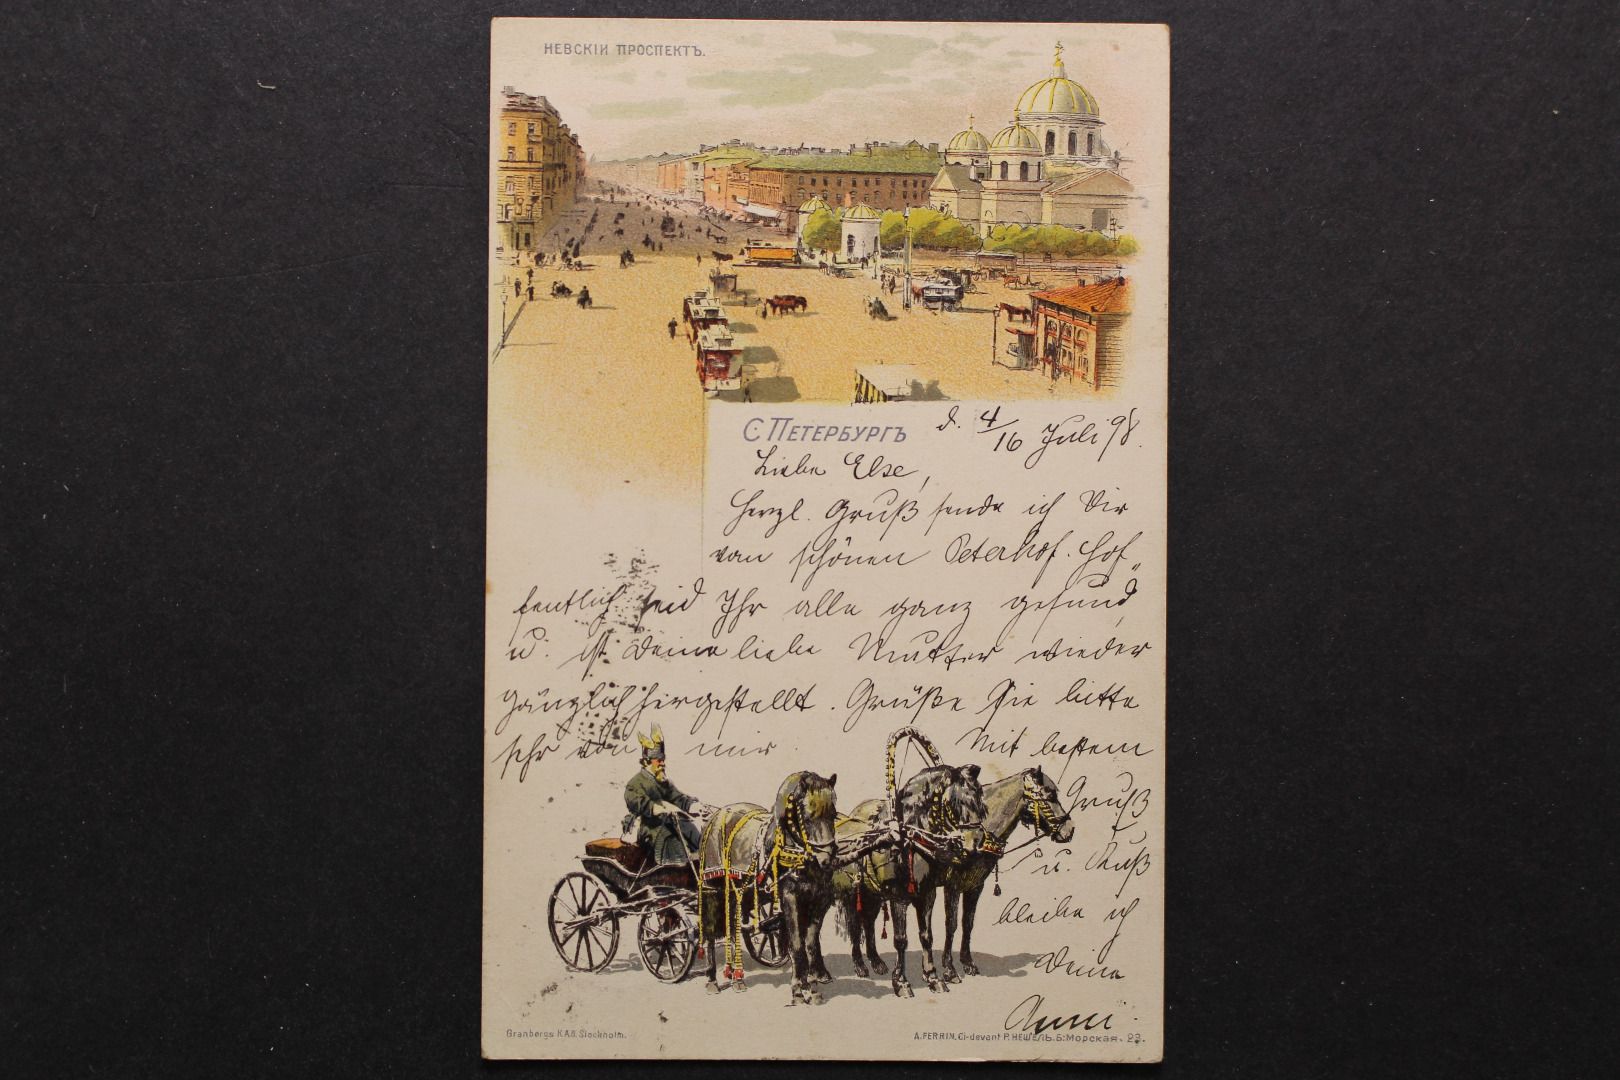 НЕВСКІЙ ПРОСПЕКТЪ.
С. ПЕТЕРБУРГЪ
d. 4/16 Juli 98.
Liebe Else,
Herzl. Gruß sende ich Dir
vom schönen Peterhof. Hof„
fentlich seid Ihr alle ganz gesund
u. ist Deine liebe Mutter wieder
gänzlich hergestellt. Grüße Sie bitte
sehr von mir.
Mit bestem
Gruß
u. Kuß
bleibe ich
Deine
Anni.
Granbergs K.A.B. Stockholm.
A. FERRIN, Ci-devant Р. НЕШЕЛЬ. Б: Морская. 23.